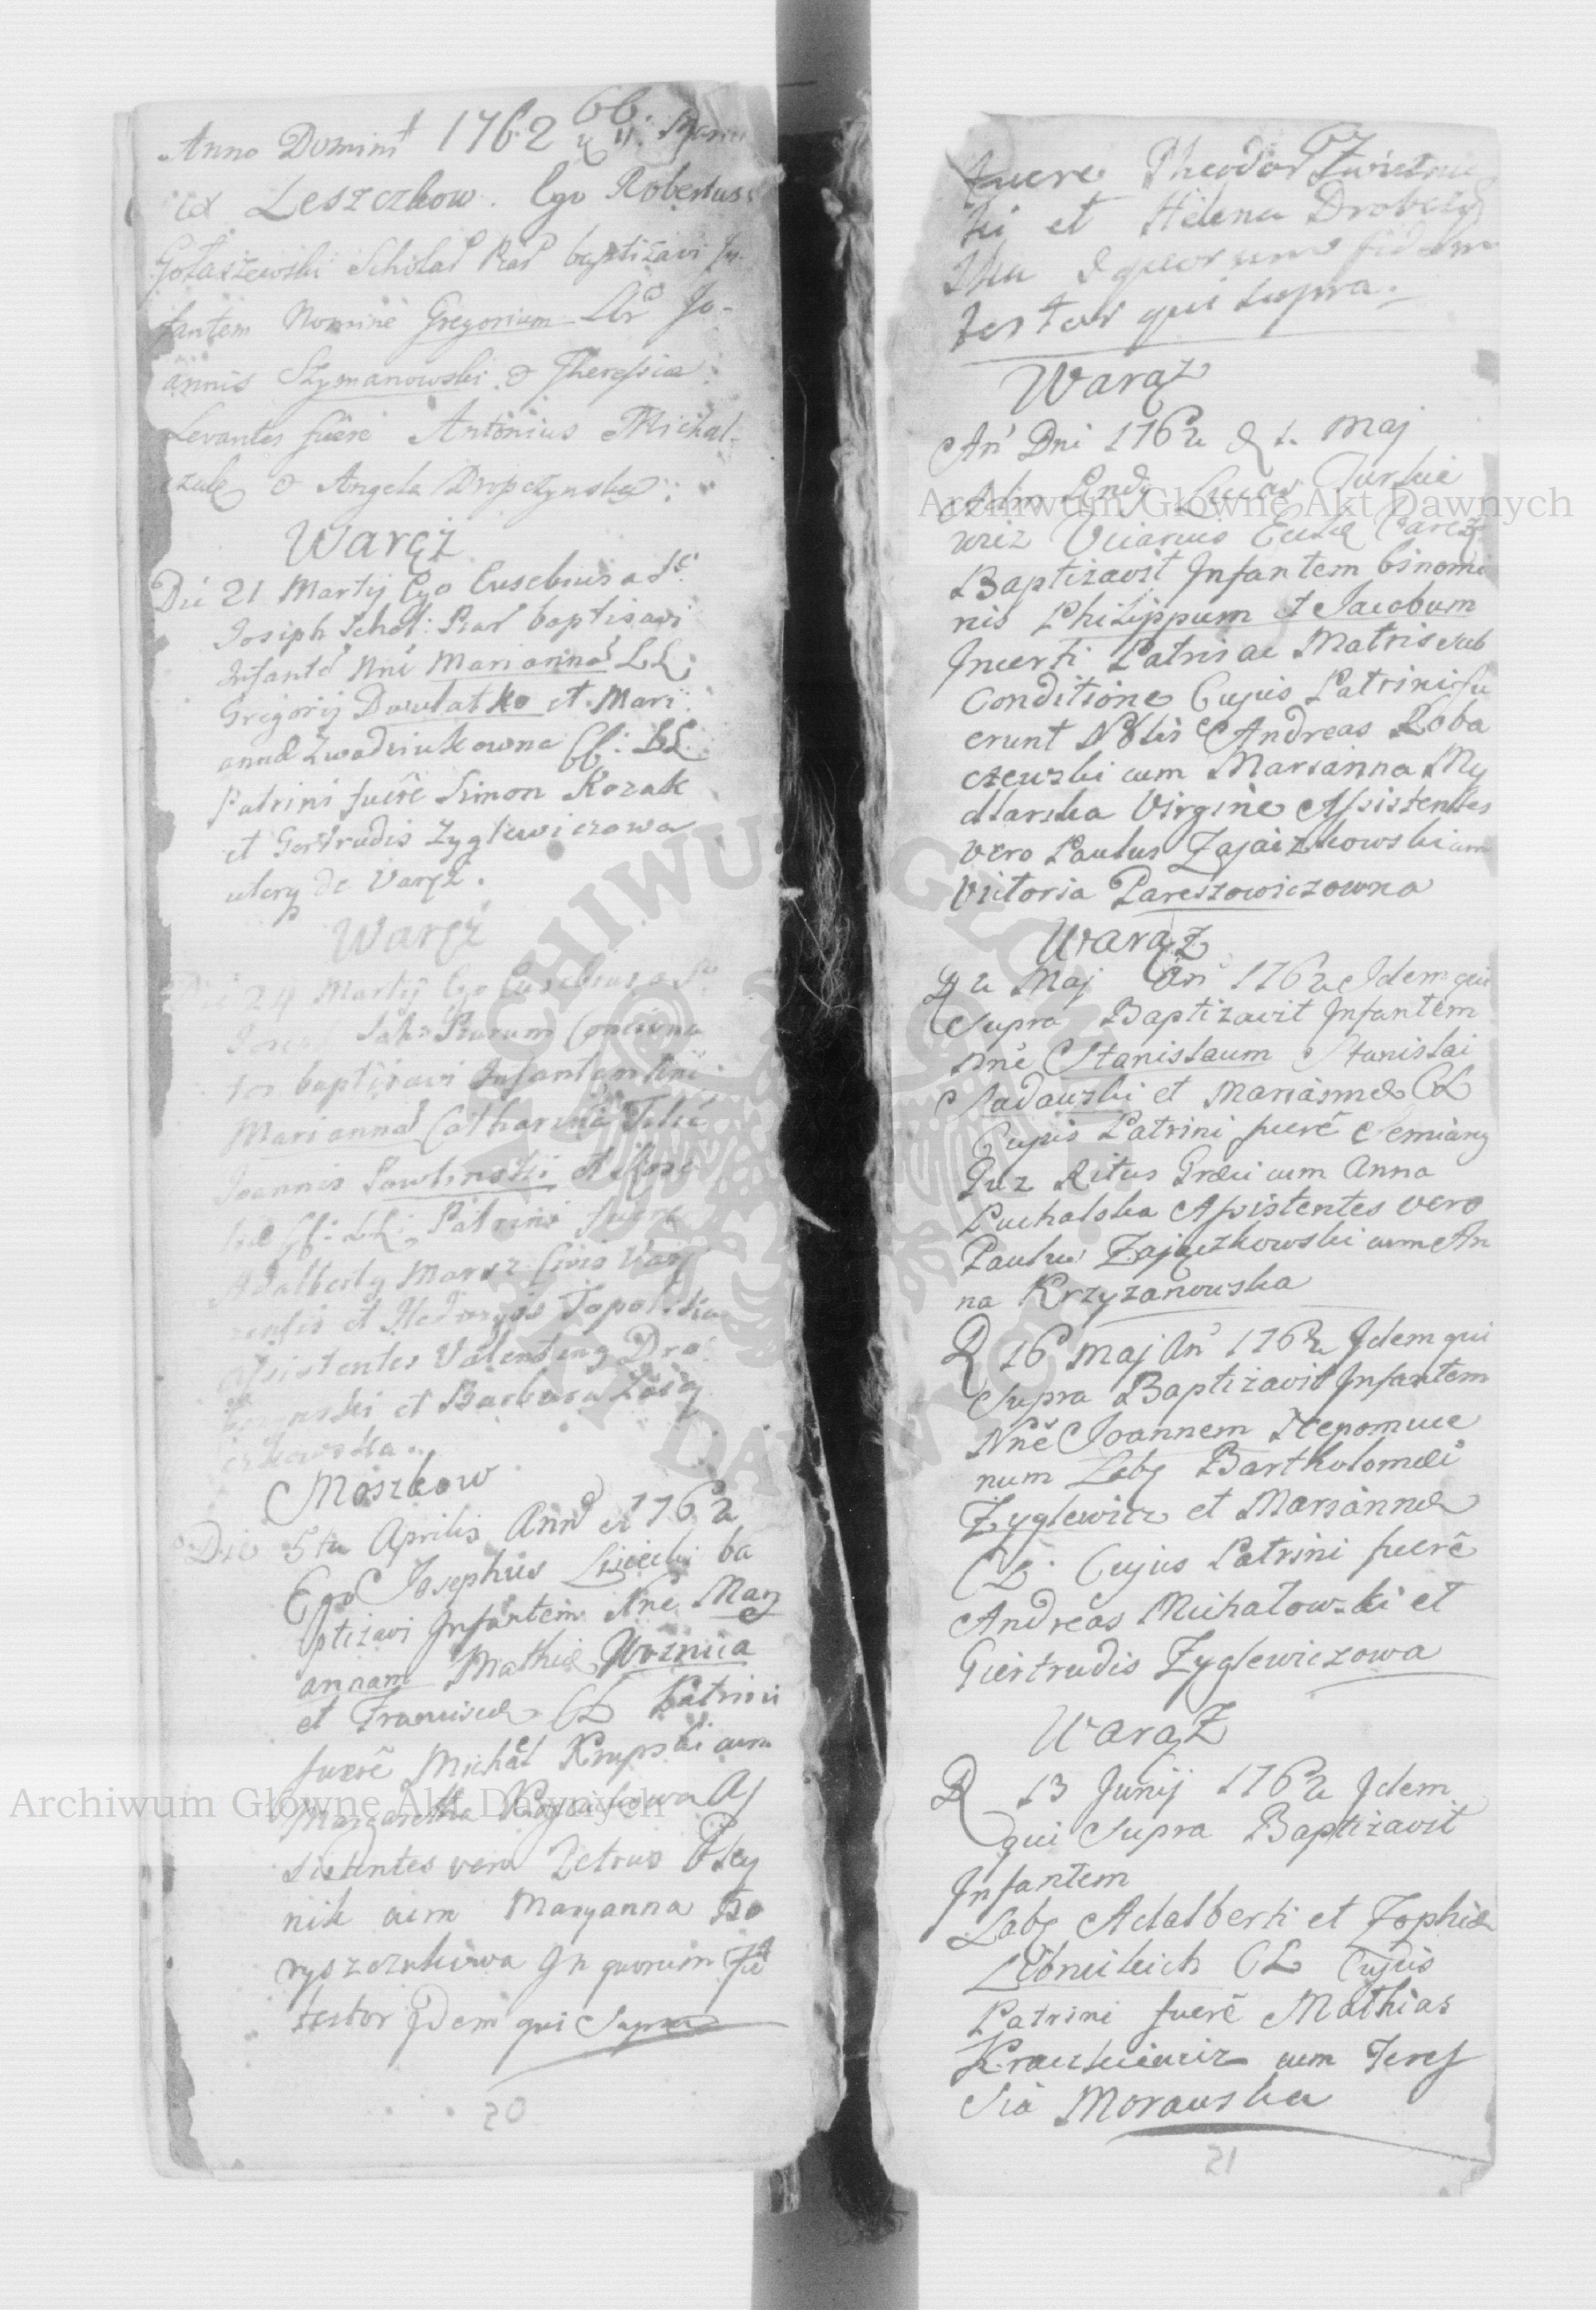 Anno Domini 1762
ex Leszczkow. Ego Robertus
Gołaszewski Scholar Piar baptizavi In-
fantem Nomine Gregorium Jo-
annis Szymanowski & Theressia
Levantes fuere Antonius Michal-
czuk & Angela Dropczynska
Waręż
Die 21 Martij Ego Eusebius a S:
Joseph Schol: Piar baptisavi
Infante Nne Marianna LL:
Gregorij Dawlatko et Mari
anna Zwadziukowna CC: LL
Patrini fuere Simon Kozak
et Gertrudis Zyglewiczowa
uterq de Varęz.
Waręż
Die 24 Martij Ego Eusebius a S
Jose Scho: Piarum Conciona
tor baptizavi Infantem
Marianna Catharina
Joannis Pawlinski et
CC: LL: Patrini fuere
Adalbertq Civis Varę
zensis et Hedvigis Topolska
assistentes Valentinq Dro
et Barbara
Moszkow
Die 5ta Aprilis Anno 1762
Ego Josephus ba
ptizavi Infantem Nne Mary
annam Mathiæ Woznica
et Franciscæ CL Patrini
fuere Michael Krupski cum
Margaretha As
sistentes vero Petrus
nik cum Maryanna Bo
ryszczukowa In quorum Fid
testor Idem qui Supra
20
fuere Theodor
ki et Helena
ska quorum fidem
testor qui supra.
Warąż
An Dni 1762 D 1. Maj
Adm Rndq Lucas Turkie
wicz Vicarius Eccle Varęz
Baptizavit Infantem binomi
nis Philippum et Jacobum
Incerti Patris ac Matris sub
Conditione Cujus Patrini fu
erunt Nblis Andreas Roba
czewski cum Marianna My
dlarska Virgine Assistentes
vero Paulus Zajączkowski cum
Victoria Pareszowiczowna
Warąż
D 2 Maj An 1762 Idem qui
Supra Baptizavit Infantem
Nne Stanislaum Stanislai
Sadawski et Mariannæ CL
Cujus Patrini fuere Semianq
Guz Ritus Græci cum Anna
Puchalska Assistentes vero
Paulus Zajączkowski cum An
na Krzyzanowska
D 16 Maj An 1762 Idem qui
Supra Baptizavit Infantem
Nne Joannem Nepomuce
num Labq Bartholomæi
Zyglewicz et Mariannæ
CL. Cujus Patrini fuere
Andreas Michałowski et
Giertrudis Zyglewiczowa
Warąż
D 13 Junij 1762 Idem
qui Supra Baptizavit
Infantem
Labq Adalberti et Zophiæ
CL Cujus
Patrini fuere Mathias
Krawkiewicz cum Teres
sia Morawska
21
Archiwum Główne Akt Dawnych
Archiwum Główne Akt Dawnych
ARCHIWUM GŁÓWNE AKT DAWNYCH